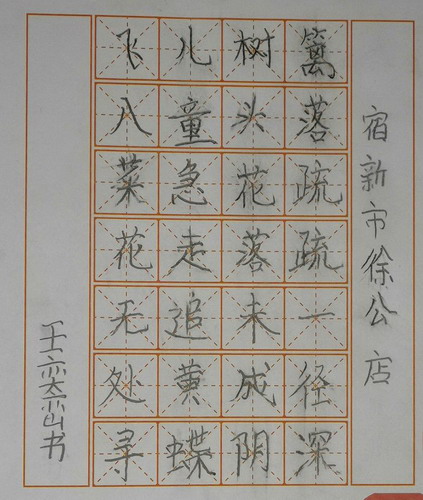 宿新市徐公店
篱落疏疏一径深
树头花落未成阴
儿童急走追黄蝶
飞入菜花无处寻
王奕书